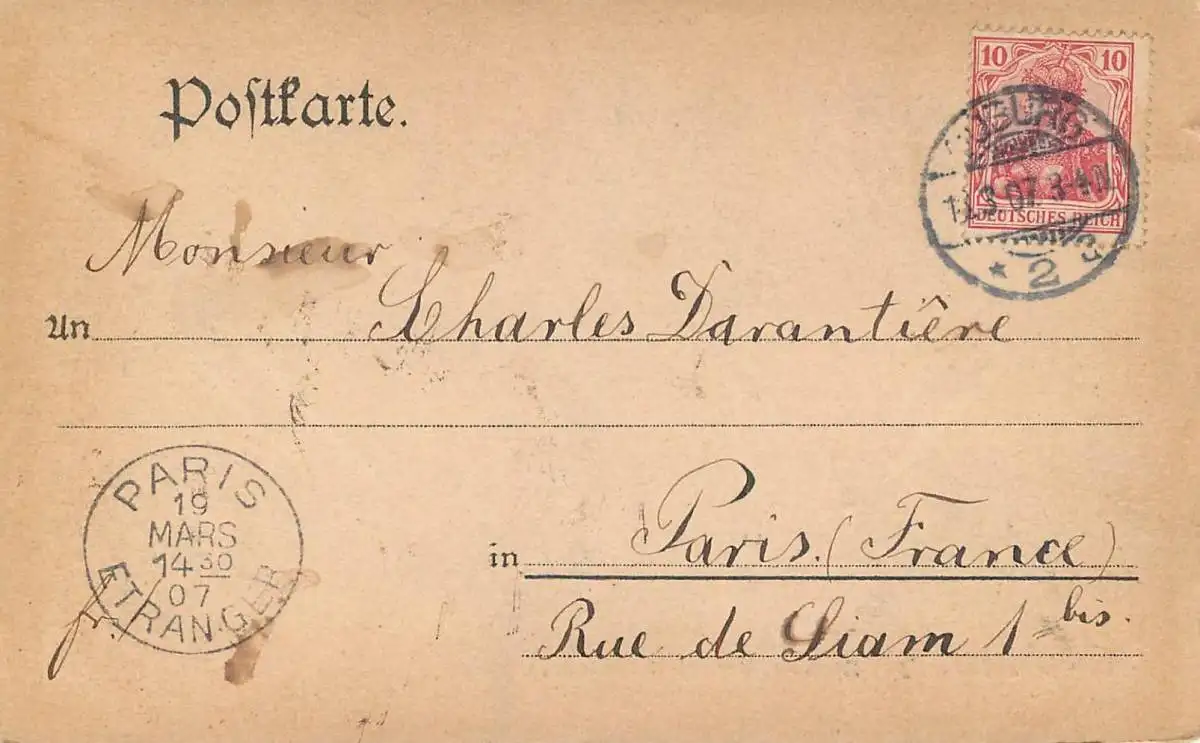 Postkarte.
10 10
DEUTSCHES REICH
07. 3-4
* 2
Monsieur
An Charles Darantière
PARIS
19
MARS
14 30
07
ETRANGER
in Paris. (France)
Rue de Siam 1 bis.